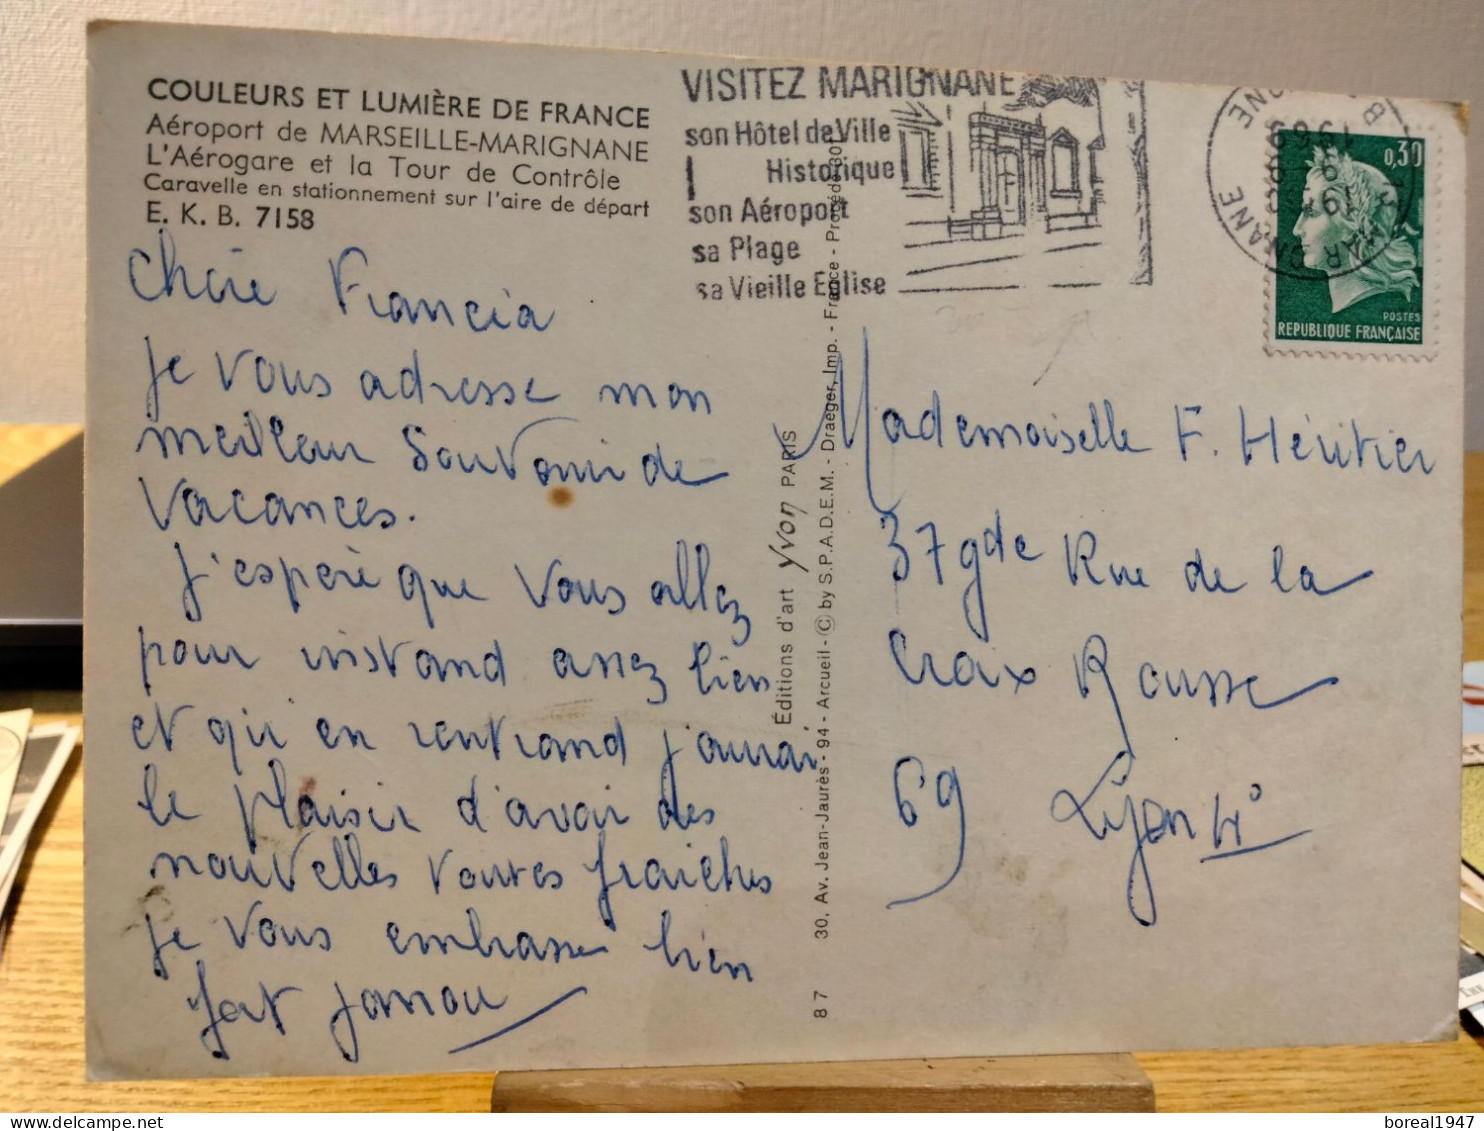 COULEURS ET LUMIÈRE DE FRANCE
Aéroport de MARSEILLE-MARIGNANE
L'Aérogare et la Tour de Contrôle
Caravelle en stationnement sur l'aire de départ
E. K. B. 7158
VISITEZ MARIGNANE
son Hôtel de Ville
Historique
son Aéroport
sa Plage
sa Vieille Eglise
1969
0,30
POSTES
REPUBLIQUE FRANÇAISE
Chère Francia
je vous adresse mon
meilleur Souvenir de
vacances.
J'espère que vous allez
pour instand assez bien
et qu'en rentrand j'aurai
le plaisir d'avoir des
nouvelles toutes fraiches
je vous embrasse bien
fort
Éditions d'art Yvon PARIS
87 30, Av. Jean-Jaurès - 94 - Arcueil - © by S.P.A.D.E.M. - Draeger, Imp. - France -
Mademoiselle F. Héritier
37 gde Rue de la
Croix Rousse
69 Lyon 4°
boreal1947